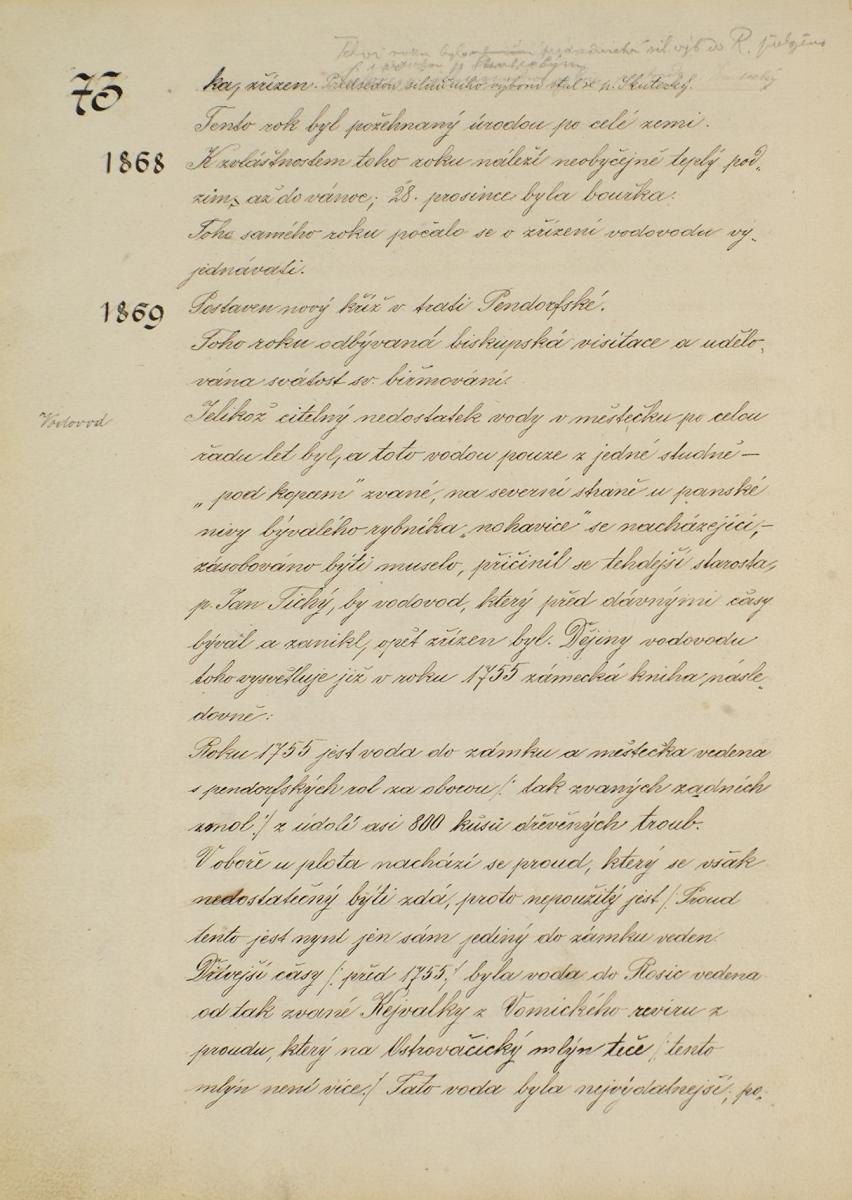 75
roku bylo sil výb do R.
ka, zřízen. Předsedou silničního výboru stal se p. Skutecký.
Tento rok byl požehnaný úrodou po celé zemi.
1868 K zvláštnostem toho roku náleží neobyčejně teplý pod„
zim, až do vánoc; 28. prosince byla bouřka.
Toho samého roku počalo se o zřízení vodovodu vy„
jednávati.
1869 Postaven nový kříž v trati Pendorfské.
Toho roku odbývaná biskupská visitace a udělo„
vána svátost sv. biřmování.
Vodovod
Jelikož citelný nedostatek vody v městečku po celou
řadu let byl, a toto vodou pouze z jedné studně –
„pod kopcem" zvané, na severní straně u panské
nivy bývalého rybníka „nohavice" se nacházející, –
zásobováno býti muselo, přičinil se tehdejší starosta,
p. Jan Tichý, by vodovod, který před dávnými časy
býval a zanikl, opět zřízen byl. Dějiny vodovodu
toho vysvětluje již v roku 1755 zámecká kniha násle„
dovně:
Roku 1755 jest voda do zámku a městečka vedena
s pendorfských rol za oborou /: tak zvaných zadních
zmol :/ z údolí asi 800 kusů dřevěných troub.
V oboře u plota nachází se proud, který se však
nedostatečný býti zdá, proto nepoužitý jest /: Proud
tento jest nyní jen sám jediný do zámku veden.
Dřívější časy /: před 1755 :/ byla voda do Rosic vedena
od tak zvané Kejvalky z Domického reviru z
proudu, který na Ostrovačický mlýn teče /: tento
mlýn není více :/ Tato voda byla nejvýdatnější, po„